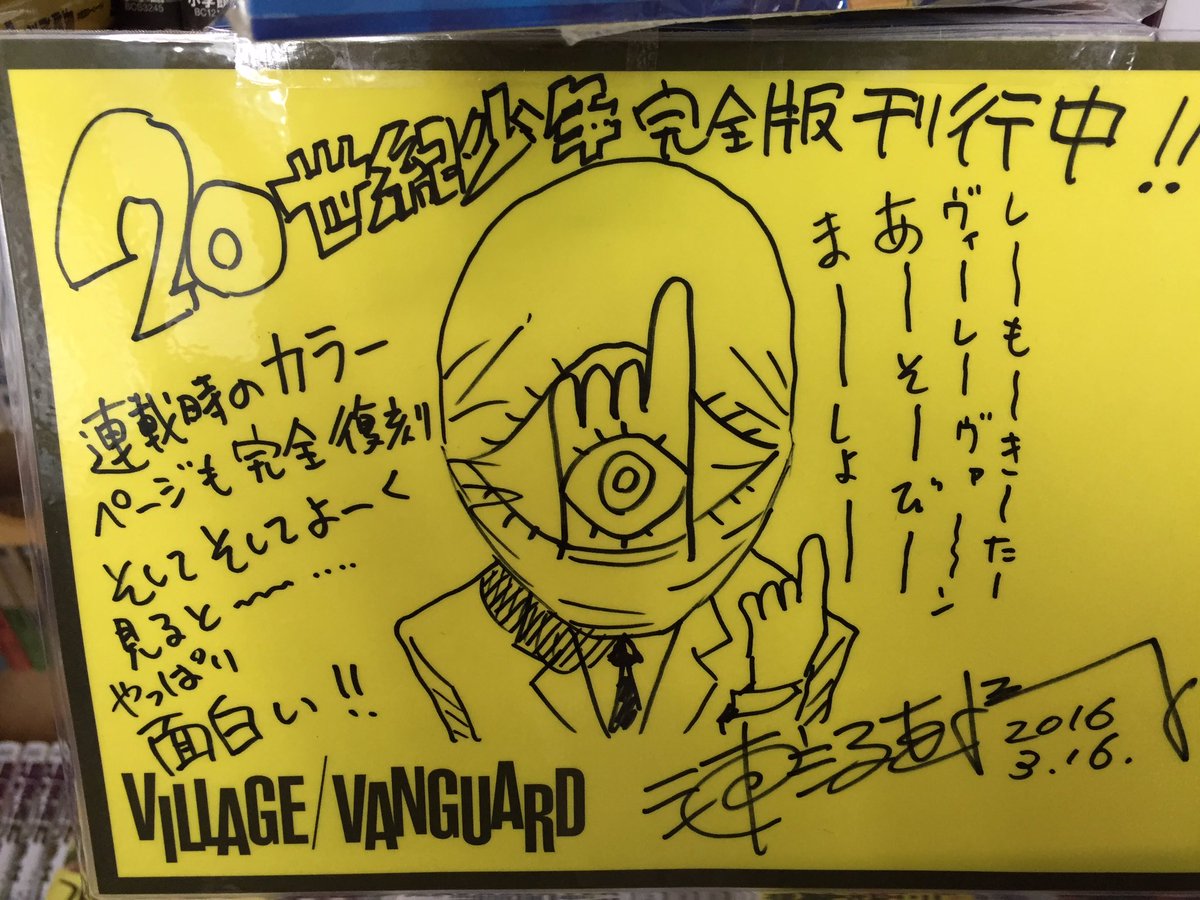 20世紀少年 完全版 刊行中!!
しーもーきーたー
ヴィーレーヴァー〜ン
あーそーびー
まーしょー
連載時のカラー
ページも完全復刻
そして そしてよーく
見ると〜〜‥‥
やっぱり
面白い!!
VILLAGE/VANGUARD
2016
3.16.